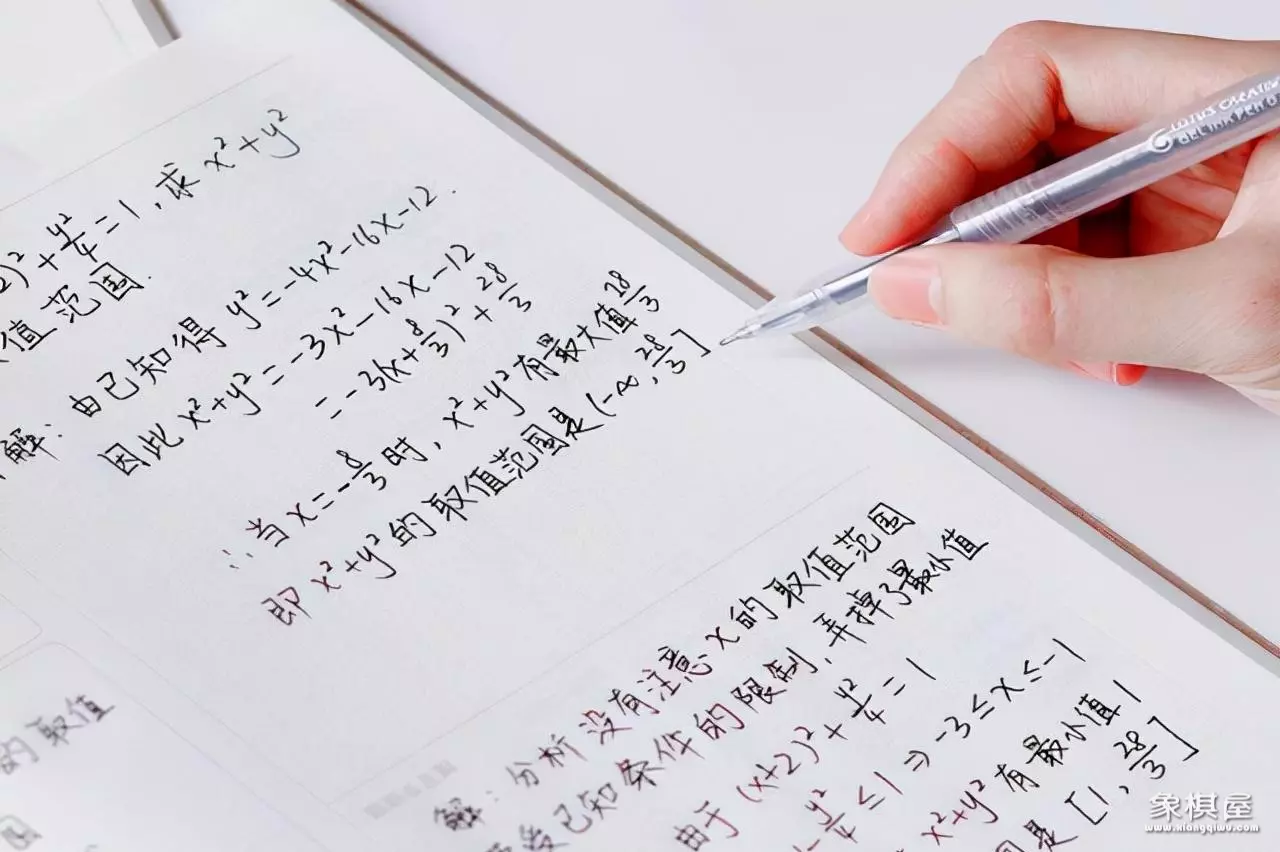 2)²+y²/4=1,求x²+y²
值范围.
解:由已知得 y²=-4x²-16x-12.
因此 x²+y²=-3x²-16x-12
=-3(x+8/3)²+28/3
∴当x=-8/3时,x²+y²有最大值28/3
即 x²+y²的取值范围是(-∞,28/3]
的取值
解:分析没有注意x的取值范围
已知条件的限制,弄掉了最小值
由于 (x+2)²+y²/4=1
-y²/4≤1⇒-3≤x≤-1
x²+y²有最小值1
是[1,28/3]
LOTUS CREATIV
GEL INK PEN 0
象棋屋
www.xiangqiwu.com